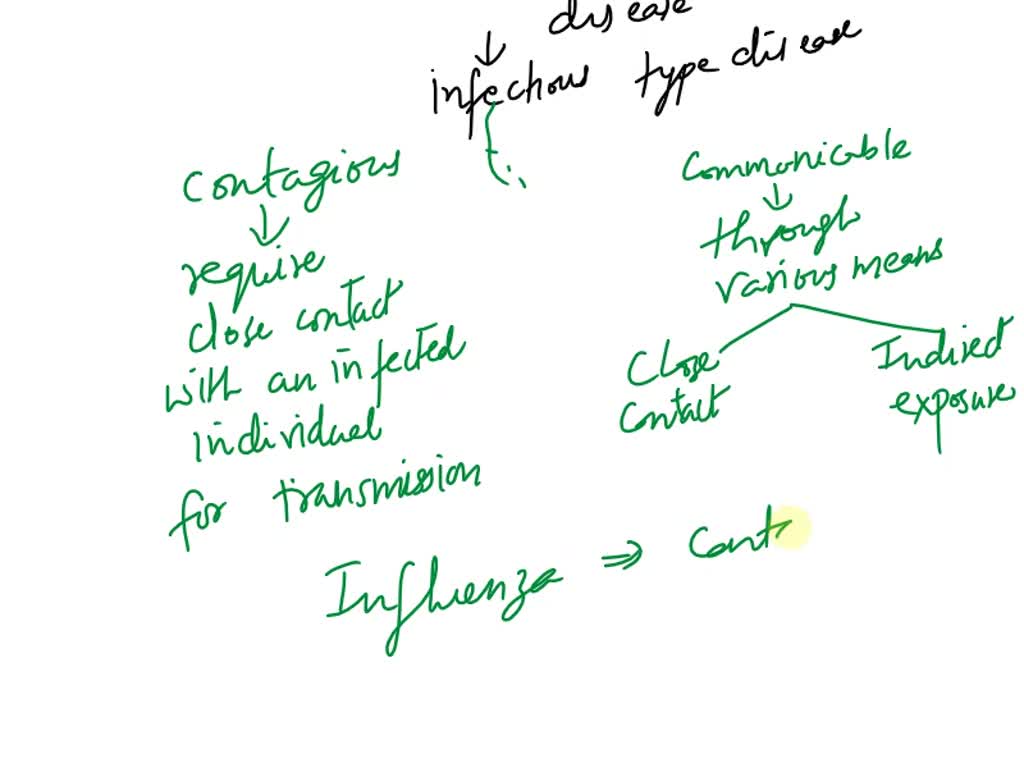 disease
infectious type disease
contagious
require
close contact
with an infected
individual
for transmission
Communicable
through
various means
Close
contact
Indirect
exposure
Influenza ⇒ cont